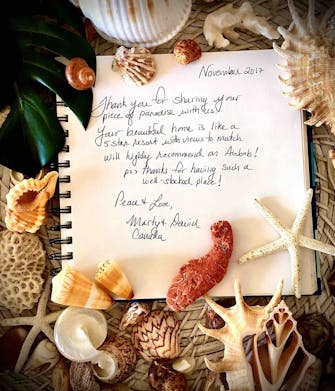 November 2017
Thank you for sharing your
piece of paradise with us
Your beautiful home is like a
5 star resort with views to match
will highly recommend on Airbnb!
ps> thanks for having such a
well-stocked place!
Peace & Love,
Marty & David
Canada